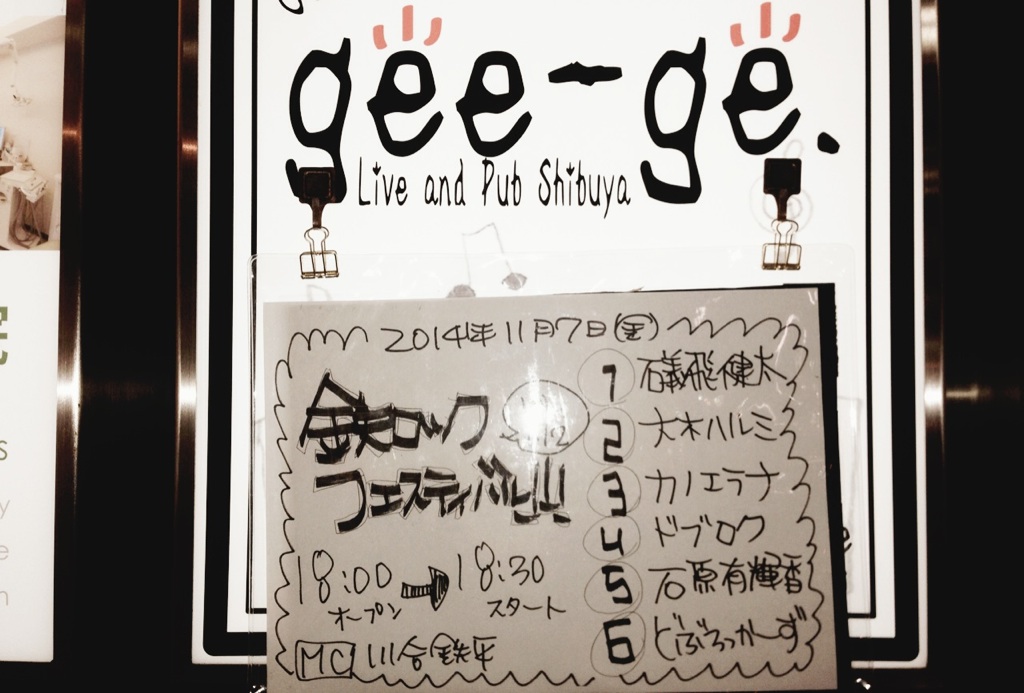 gee-ge.
Live and Pub Shibuya
2014年11月7日(金)
鉄ロック
フェスティバル!!!
18:00→18:30
オープン スタート
MC 川合鉄平
1 礒飛健太
2 大木ハルミ
3 カノエラナ
4 ドブロク
5 石原有輝香
6 どぶろっかーず